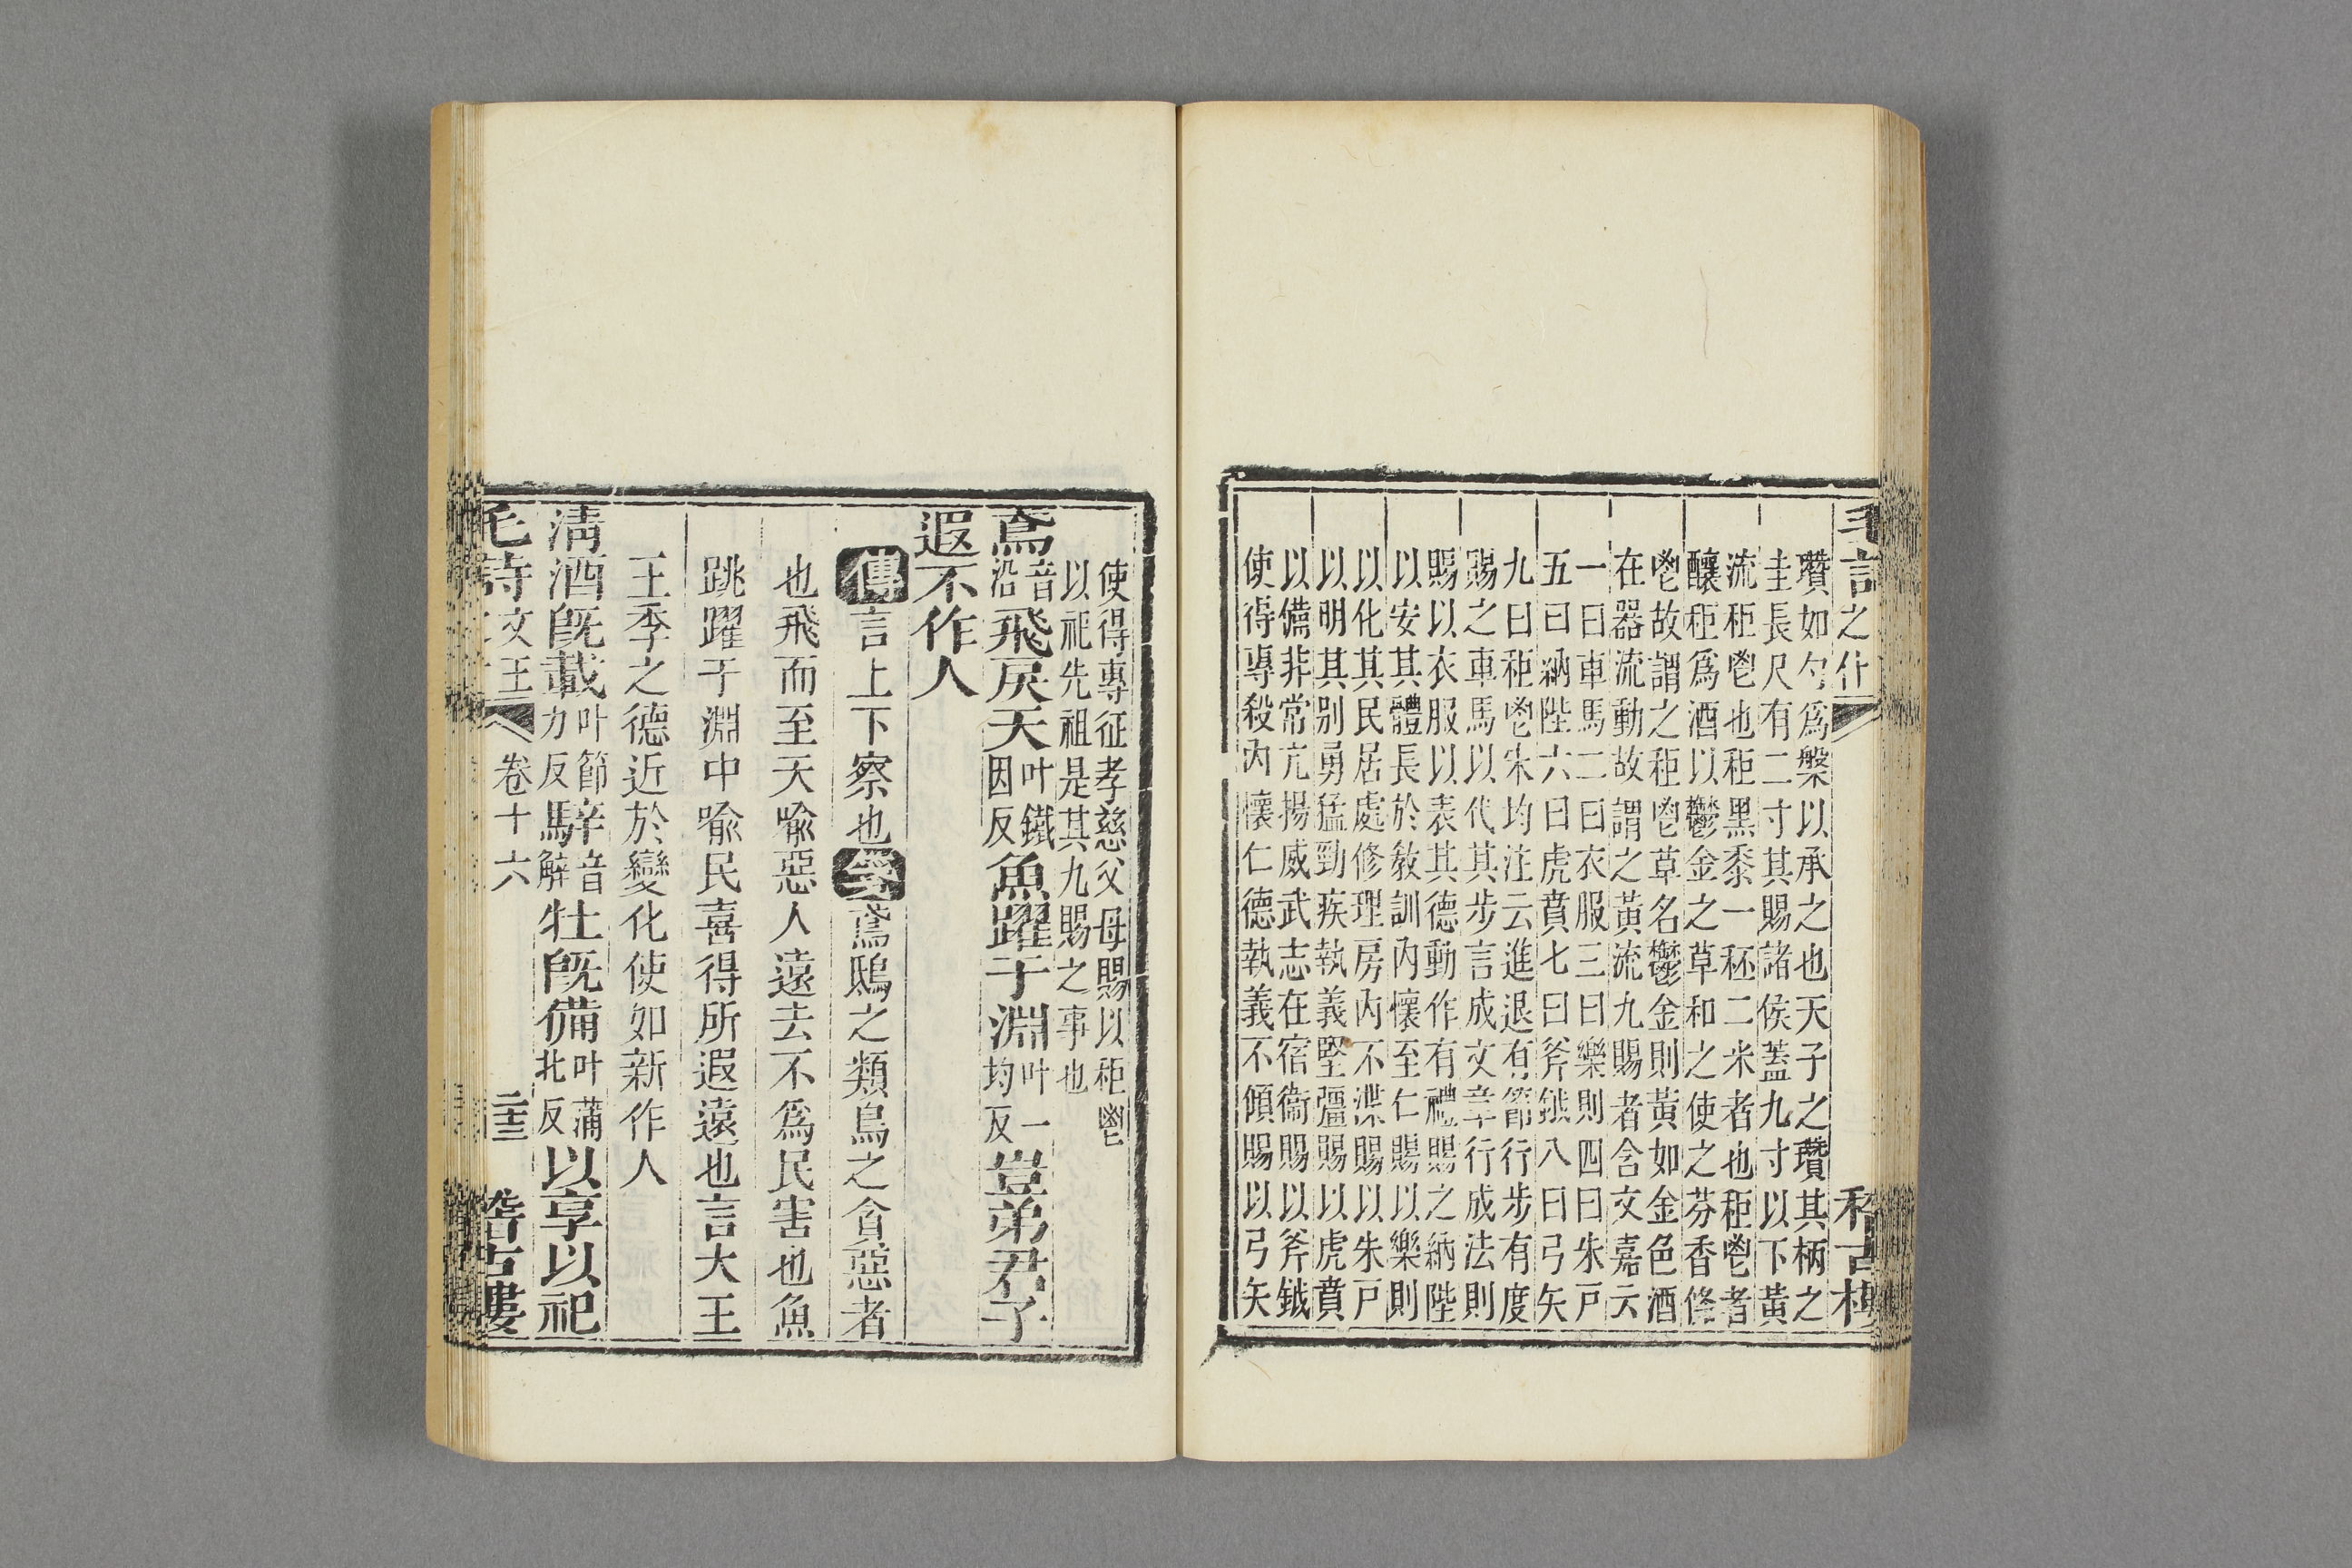 毛詩之什 稽古樓
瓚如勺爲槃以承之也天子之瓚其柄之
圭長尺有二寸其賜諸侯蓋九寸以下黃
流秬鬯也秬黑黍一秠二米者也秬鬯者
釀秬爲酒以鬱金之草和之使之芬香條
鬯故謂之秬鬯草名鬱金則黃如金色酒
在器流動故謂之黃流九賜者含文嘉云
一曰車馬二曰衣服三曰樂則四曰朱戸
五曰納陛六曰虎賁七曰斧鉞八曰弓矢
九曰秬鬯宋均注云進退有節行步有度
賜之車馬以代其步言成文章行成法則
賜以衣服以表其德動作有禮賜之納陛
以安其體長於敎訓內懷至仁賜以樂則
以化其民居處修理房內不渫賜以朱戸
以明其別勇猛勁疾執義堅彊賜以虎賁
以備非常亢揚威武志在宿衞賜以斧鉞
使得專殺內懷仁德執義不傾賜以弓矢
使得專征孝慈父母賜以秬鬯
以祀先祖是其九賜之事也
鳶音沿飛戾天叶鐵因反魚躍于淵叶一均反豈弟君子
遐不作人
傳言上下察也箋鳶鴟之類鳥之貪惡者
也飛而至天喻惡人遠去不爲民害也魚
跳躍于淵中喻民喜得所遐遠也言大王
王季之德近於變化使如新作人
淸酒旣載叶節力反騂音解牡旣備叶蒲北反以享以祀
毛詩 文王 卷十六 二十三 稽古樓